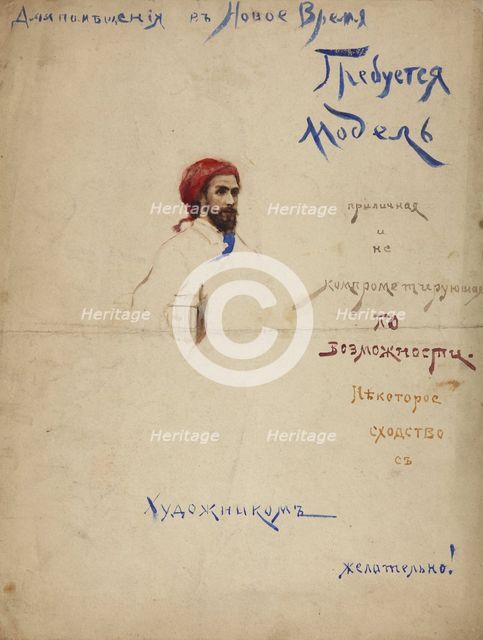 Для помѣщенія въ Новое Время
Требуется
Модель
приличная
и
не
компрометирующая
по
возможности.
Нѣкоторое
сходство
съ
Художникомъ
желательно!
Heritage Heritage
Heritage Heritage Heritage Heritage
©
Heritage Heritage